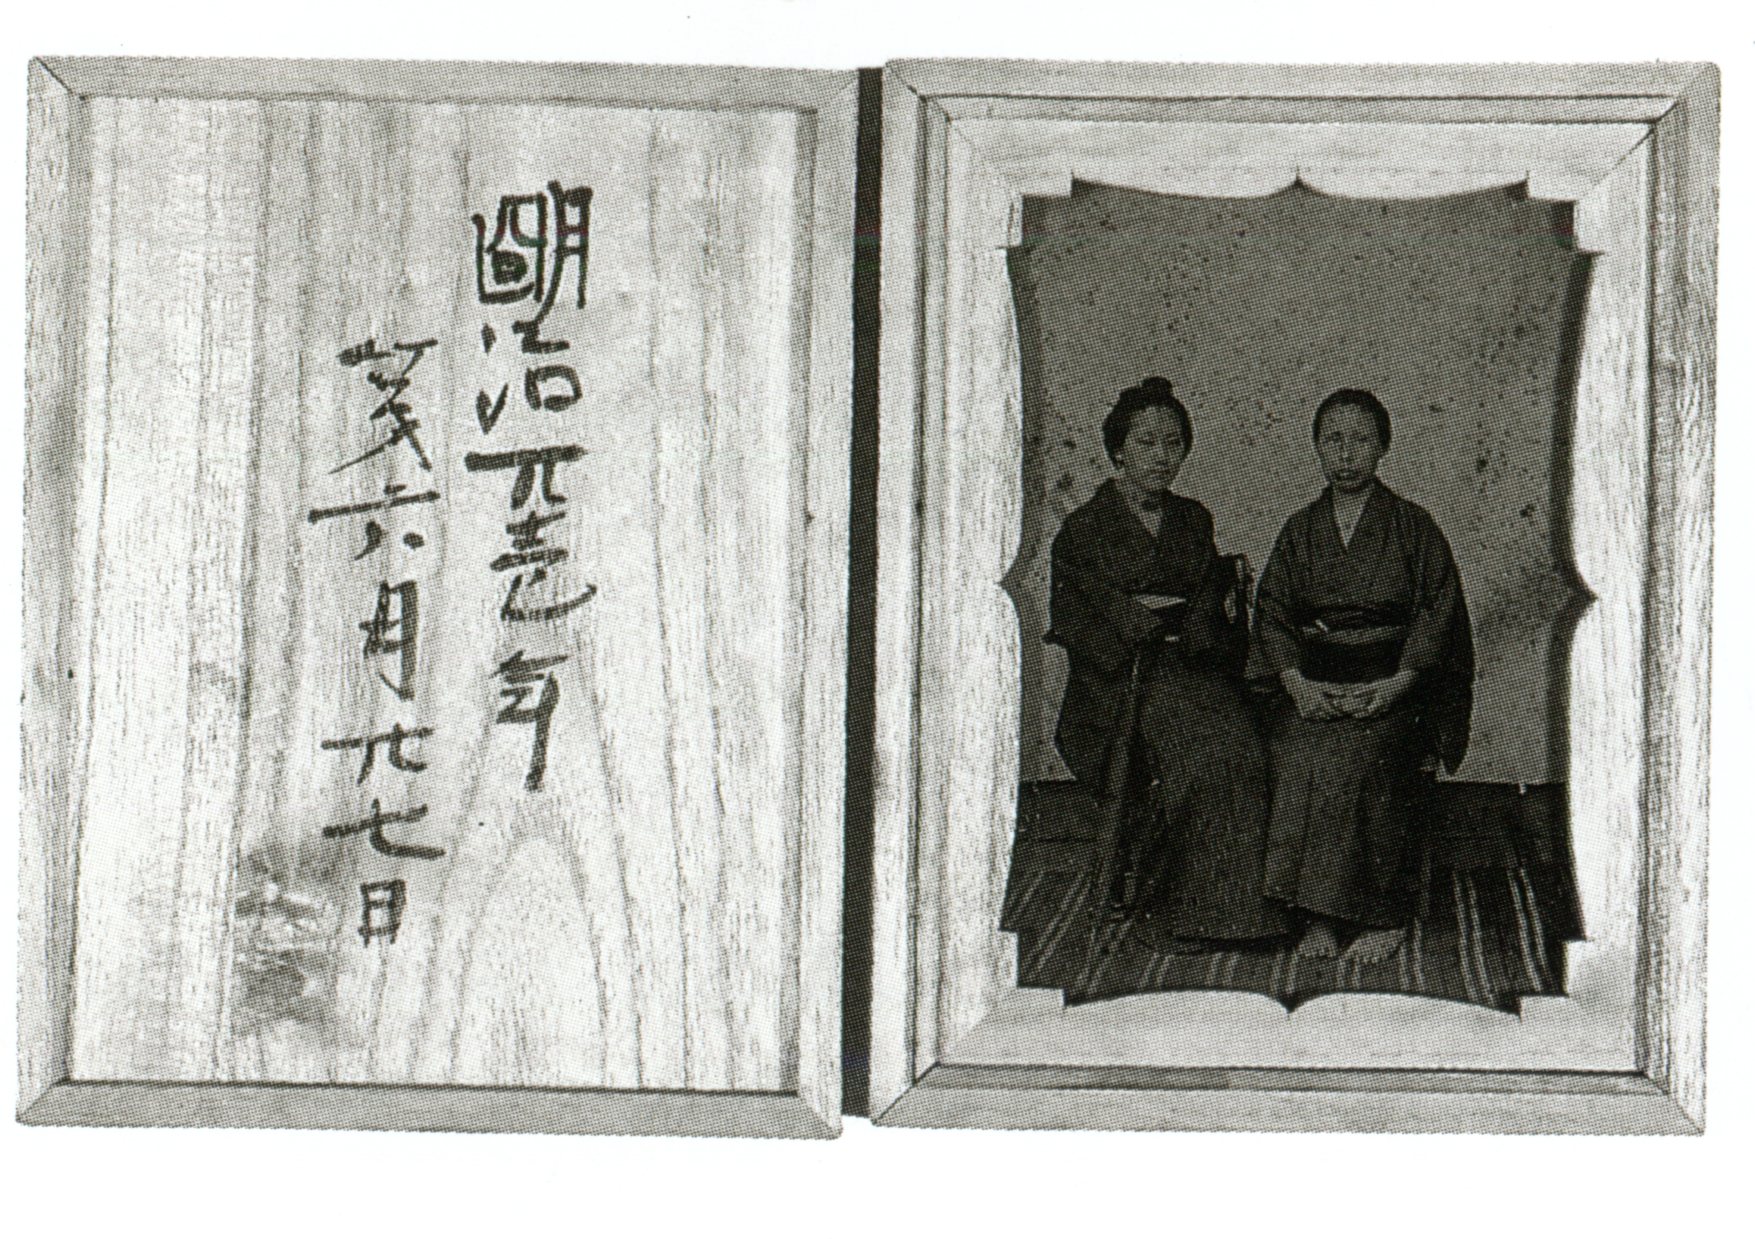 明治元壱年
六月廿七日